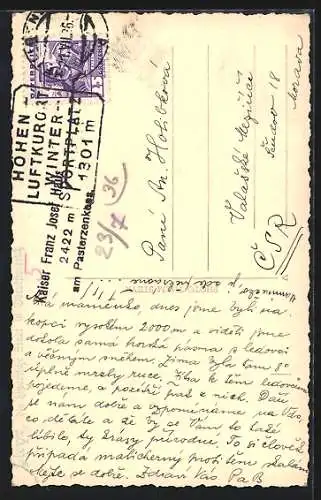 HÖHEN-
LUFTKURORT
WINTER-
SPORTPLATZ
1301 m
Kaiser Franz Josef Haus
2422 m
am Pasterzenkees
23/7 36
Paní
An. Holibková
Valašské Meziříčí
18
Morava
ČSR
Zlatá maminko, dnes jsme byli na
kopci vysokém 2000 m a viděli jsme
dokola samá horská pásma s ledovci
a věčným sněhem. Zima byla tam
úplně mrzly ruce. k těm ledovcům
pojedeme, a pozítří zas z nich. Daří
se nám dobře a vzpomínáme na Vás,
co děláte a že by se Vám to také
líbilo, ty krásy přírodní. To si člověk
připadá malicherný proti těm skalám.
Mějte se dobře. Zdraví Vás